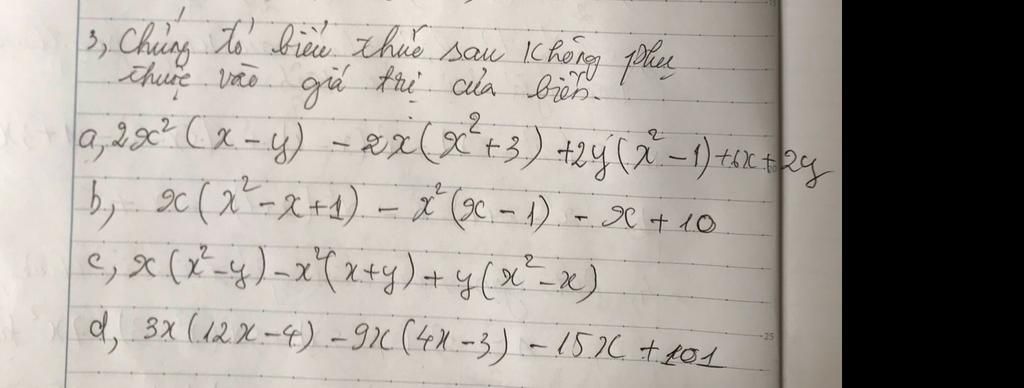 3, Chứng tỏ biểu thức sau không phụ
thuộc vào giá trị của biến.
a, 2x²(x-y) - 2x(x²+3) + 2y(x²-1) + 6x + 2y
b, x(x²-x+1) - x²(x-1) - x + 10
c, x(x²-y) - x²(x+y) + y(x²-x)
d, 3x(12x-4) - 9x(4x-3) - 15x + 101